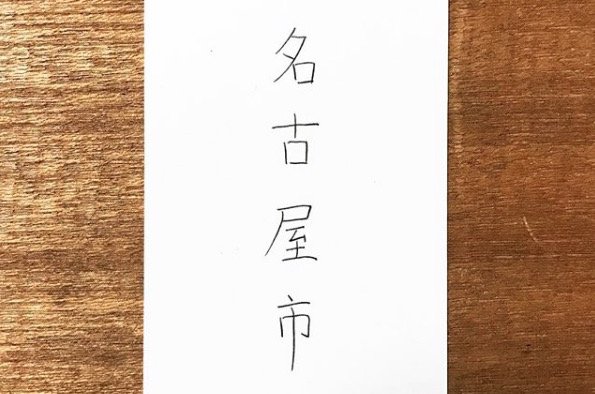 名古屋市